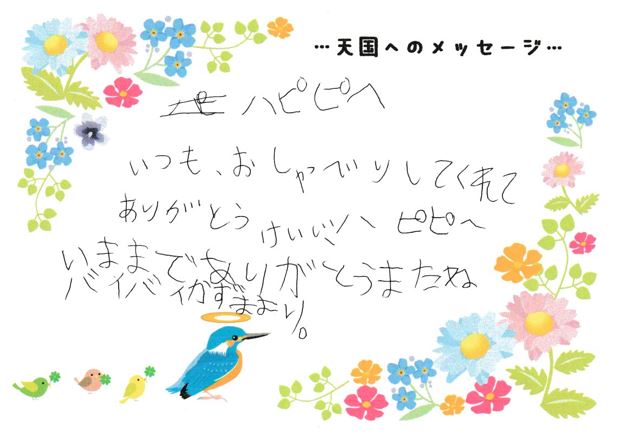 …天国へのメッセージ…
ハピピへ
いつも、おしゃべりしてくれて
ありがとう ピピへ
いままでありがとうまたね
バイバイ かずま より。